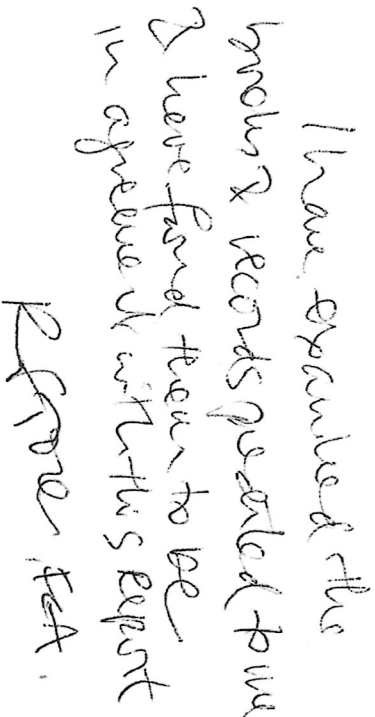 I have examined the
books & records presented to me
& have found them to be
in agreement with this report